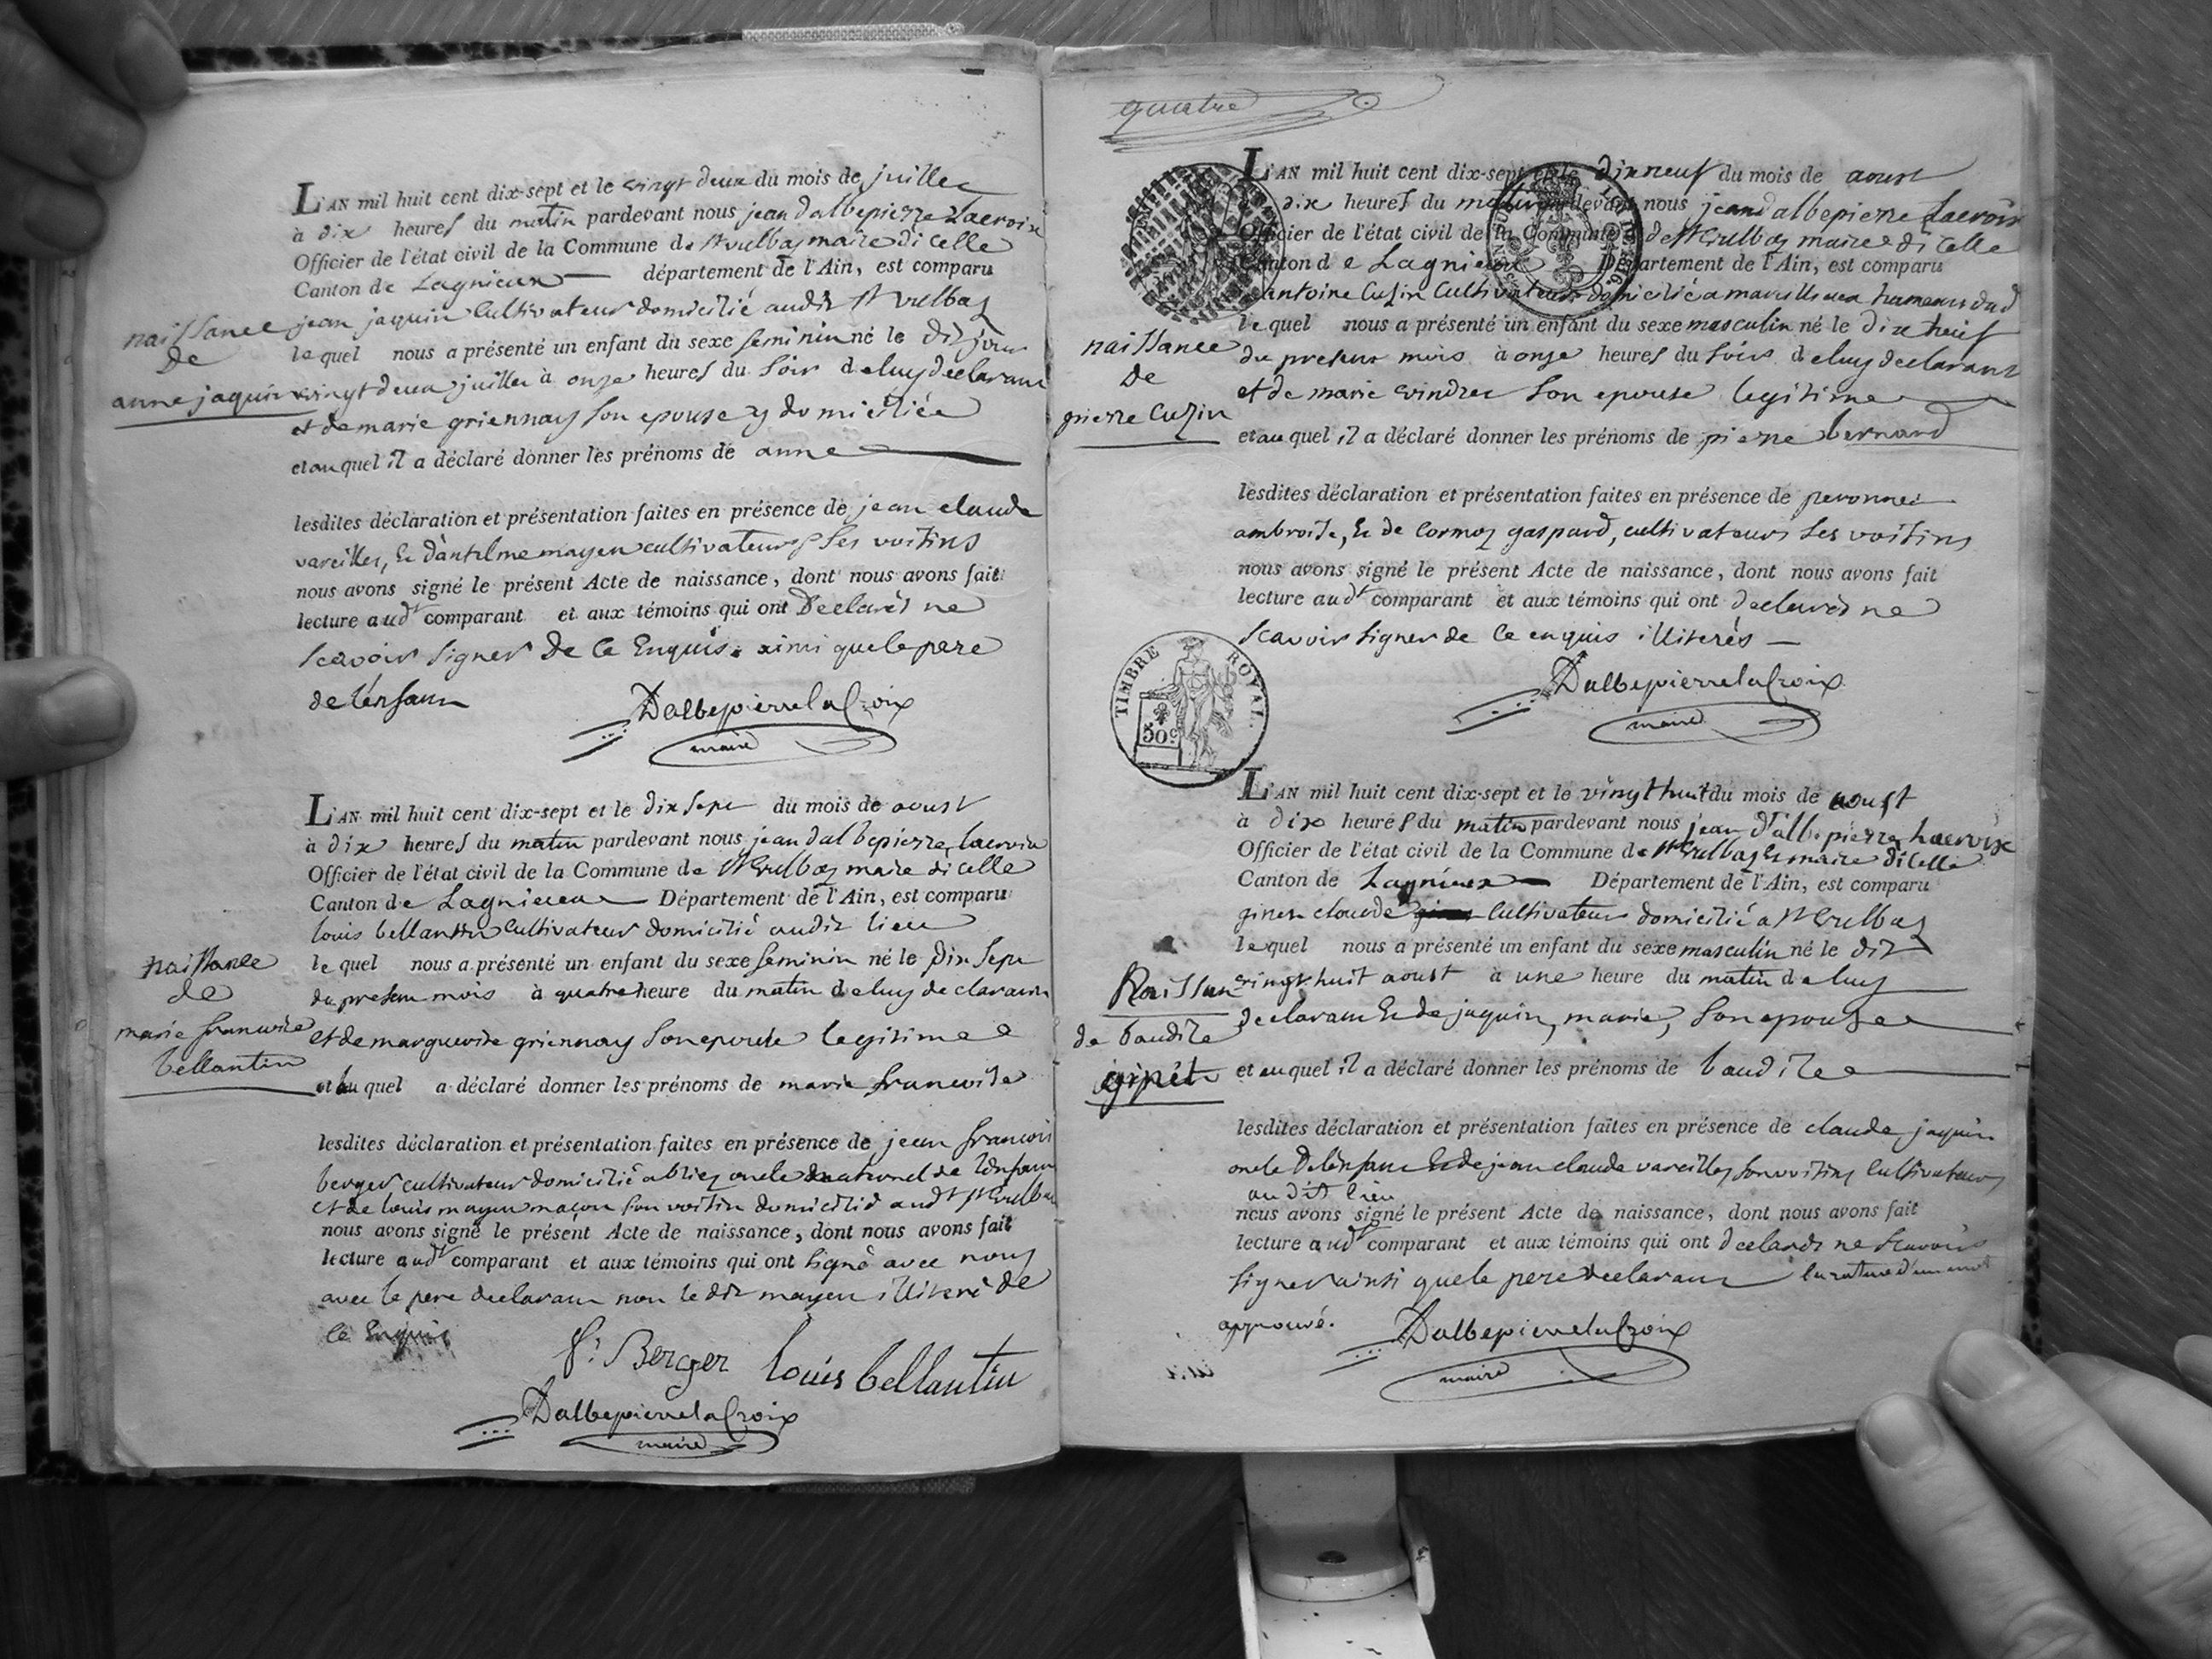 L'AN mil huit cent dix-sept et le vingt deux du mois de juillet
à dix heures du matin pardevant nous jean dalbepierre Lacroix
Officier de l'état civil de la Commune de St vulbas maire dicelle
Canton de Lagnieux département de l'Ain, est comparu
jean jaquin Cultivateur domicilié audit St vulbas
lequel nous a présenté un enfant du sexe feminin né le dit jour
vingt deux juillet à onze heures du soir de luy declarant
et de marie griennay son epouse y domiciliée
et au quel il a déclaré donner les prénoms de anne
naissance
de
anne jaquin
lesdites déclaration et présentation faites en présence de jean claude
vareilles, & dantelme mayen cultivateurs ses voisins
nous avons signé le présent Acte de naissance, dont nous avons fait
lecture audt comparant et aux témoins qui ont Declarés ne
scavoir signer de ce Enquis. ainsi que le pere
de lenfant
DalbepierrelaCroix
maire
L'AN mil huit cent dix-sept et le dix sept du mois de aoust
à dix heures du matin pardevant nous jean dalbepierre lacroix
Officier de l'état civil de la Commune de St Vulbas maire dicelle
Canton de Lagnieux Département de l'Ain, est comparu
louis bellantin Cultivateur domicilié audit lieu
lequel nous a présenté un enfant du sexe feminin né le Dix sept
du present mois à quatre heure du matin de luy declarant
et de marguerite griennay son epouse legitime
et au quel a déclaré donner les prénoms de marie francoise
naissance
de
marie francoise
bellantin
lesdites déclaration et présentation faites en présence de jean francois
berger cultivateur domicilié a bliez oncle maternel de lenfant
et de louis mayen macon son voisin domicilié audt St Vulbas
nous avons signé le présent Acte de naissance, dont nous avons fait
lecture audt comparant et aux témoins qui ont signé avec nous
avec le pere declarant non le dit mayen illiteré de
ce Enquis
fs Berger louis bellantin
DalbepierrelaCroix
maire
quatre
L'AN mil huit cent dix-sept et le dix neuf du mois de aoust
dix heures du matin pardevant nous jean dalbepierre Lacroix
Officier de l'état civil de la Commune de St Vulbas maire dicelle
Canton de Lagnieux Département de l'Ain, est comparu
antoine Cuzin Cultivateur domicilié a marcillieux hameau dud
lequel nous a présenté un enfant du sexe masculin né le dix huit
du present mois à onze heures du soir de luy declarant
et de marie vindret son epouse legitime
et au quel il a déclaré donner les prénoms de pierre bernard
naissance
de
pierre Cuzin
lesdites déclaration et présentation faites en présence de peronnet
ambroise, & de Cormoz gaspard, cultivateurs ses voisins
nous avons signé le présent Acte de naissance, dont nous avons fait
lecture audt comparant et aux témoins qui ont declarés ne
scavoir signer de ce enquis illiterés
TIMBRE ROYAL.
50c
DalbepierrelaCroix
maire
L'AN mil huit cent dix-sept et le vingt huit du mois de aoust
à dix heures du matin pardevant nous jean d'albepierre Lacroix
Officier de l'état civil de la Commune de St Vulbas & maire dicelle
Canton de Lagnieux Département de l'Ain, est comparu
ginet claude Cultivateur domicilié a St Vulbas
lequel nous a présenté un enfant du sexe masculin né le dit
vingt huit aoust à une heure du matin de luy
declarant & de jaquin, marie, son epouse
et au quel il a déclaré donner les prénoms de baudile
Naissance
de baudile
ginet
lesdites déclaration et présentation faites en présence de claude jaquin
oncle Delenfant & de jean claude vareilles son voisin Cultivateurs
au dit lieu
nous avons signé le présent Acte de naissance, dont nous avons fait
lecture audt comparant et aux témoins qui ont declarés ne scavoir
signer ainsi que le pere declarant la rature d'un mot
approuvé.
DalbepierrelaCroix
maire